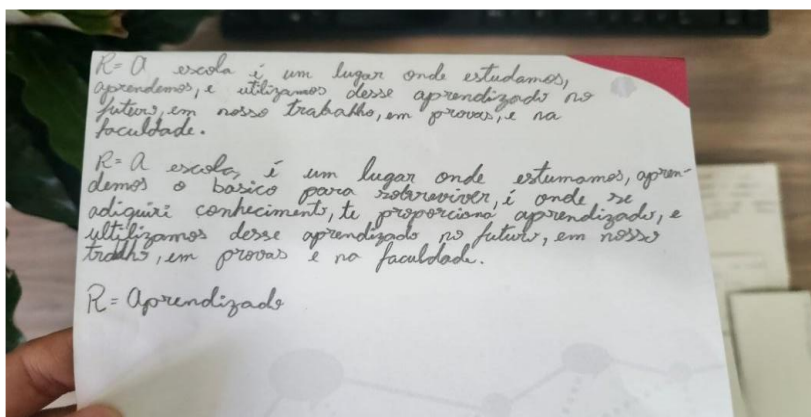 R= A escola é um lugar onde estudamos,
aprendemos, e utilizamos desse aprendizado no
futuro, em nosso trabalho, em provas, e na
faculdade.
R= A escola, é um lugar onde estumamos, apren-
demos o basico para sobreviver, é onde se
adiquiri conhecimento, te proporciona aprendizado, e
ultilizamos desse aprendizado no futuro, em nosso
tralho, em provas e na faculdade.
R= Aprendizado